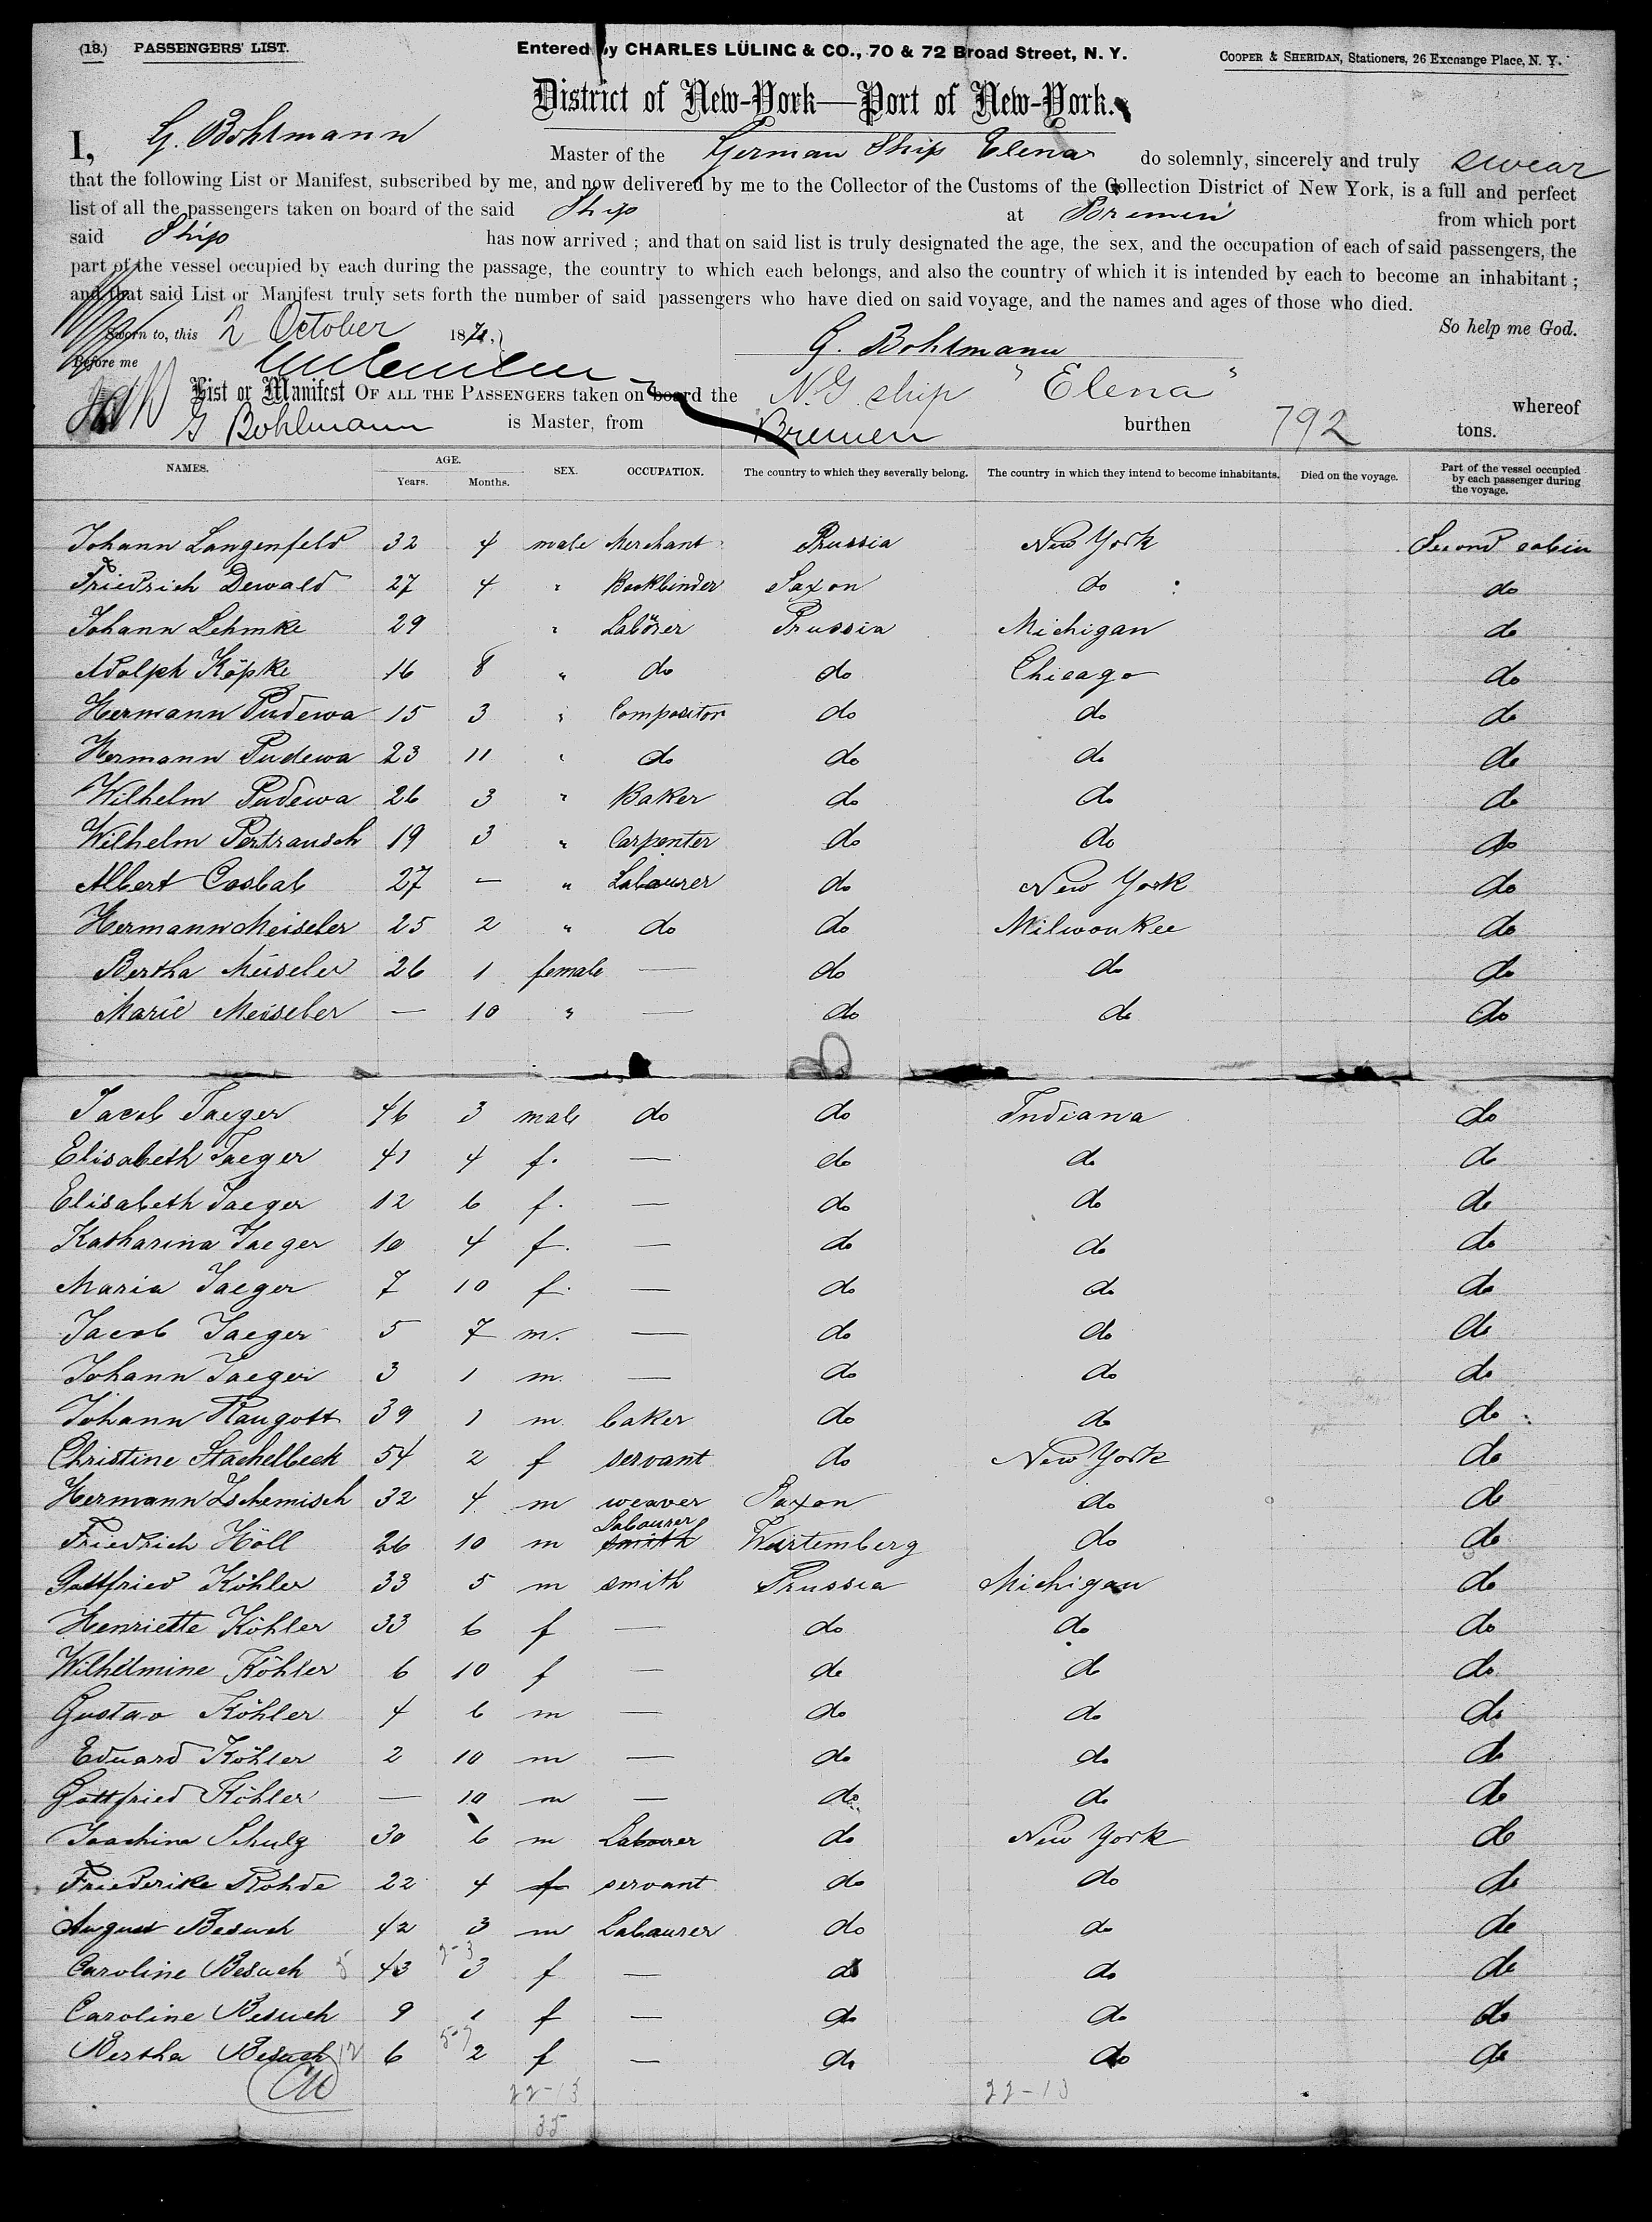 (18.) PASSENGERS' LIST. Entered by CHARLES LÜLING & CO., 70 & 72 Broad Street, N. Y. COOPER & SHERIDAN, Stationers, 26 Exchange Place, N. Y.
District of New-York—Port of New-York.
I, G. Bohlmann Master of the German Ship Elena do solemnly, sincerely and truly swear
that the following List or Manifest, subscribed by me, and now delivered by me to the Collector of the Customs of the Collection District of New York, is a full and perfect
list of all the passengers taken on board of the said Ship at Bremen from which port
said Ship has now arrived ; and that on said list is truly designated the age, the sex, and the occupation of each of said passengers, the
part of the vessel occupied by each during the passage, the country to which each belongs, and also the country of which it is intended by each to become an inhabitant ;
and that said List or Manifest truly sets forth the number of said passengers who have died on said voyage, and the names and ages of those who died.
So help me God.
Sworn to, this 2 October 187
G. Bohlmann
Before me
List or Manifest OF ALL THE PASSENGERS taken on board the N.G. ship "Elena" whereof
G Bohlmann is Master, from Bremen burthen 792 tons.
NAMES. AGE. Years. Months. SEX. OCCUPATION. The country to which they severally belong. The country in which they intend to become inhabitants. Died on the voyage. Part of the vessel occupied by each passenger during the voyage.
Johann Langenfeld 32 4 male Merchant Prussia New York Second cabin
Friedrich Dewald 27 4 " Bookbinder Saxon do do
Johann Lehmke 29 " Laborer Prussia Michigan do
Adolph Köpke 16 8 " do do Chicago do
Hermann Pudewa 15 3 " Compositor do do do
Hermann Pudewa 23 11 " do do do do
Wilhelm Pudewa 26 3 " Baker do do do
Wilhelm Pertrausch 19 3 " Carpenter do do do
Albert Casbal 27 — " Labaurer do New York do
Hermann Meiseler 25 2 " do do Milwoukee do
Bertha Meiseler 26 1 female — do do do
Marie Meiseler — 10 " — do do do
Jacob Jaeger 46 3 male do do Indiana do
Elisabeth Jaeger 41 4 f. — do do do
Elisabeth Jaeger 12 6 f. — do do do
Katharina Jaeger 10 4 f. — do do do
Maria Jaeger 7 10 f. — do do do
Jacob Jaeger 5 7 m. — do do do
Johann Jaeger 3 1 m. — do do do
Johann Raugott 39 1 m baker do do do
Christine Stachelbeck 54 2 f servant do New York do
Hermann Zschemisch 32 4 m weaver Saxon do do
Friedrich Höll 26 10 m smith Labaurer Würtemberg do do
Gottfried Köhler 33 5 m smith Prussia Michigan do
Henriette Köhler 33 6 f — do do do
Wilhelmine Köhler 6 10 f — do do do
Gustav Köhler 4 6 m — do do do
Eduard Köhler 2 10 m — do do do
Gottfried Köhler — 10 m — do do do
Joachim Schulz 30 6 m Labourer do New York do
Friederike Rohde 22 4 f servant do do do
August Besuch 42 3 m Labaurer do do do
Caroline Besuch 43 3 f — do do do
Caroline Besuch 9 1 f — do do do
Bertha Besuch 6 2 f — do do do
22-13 22-13
35